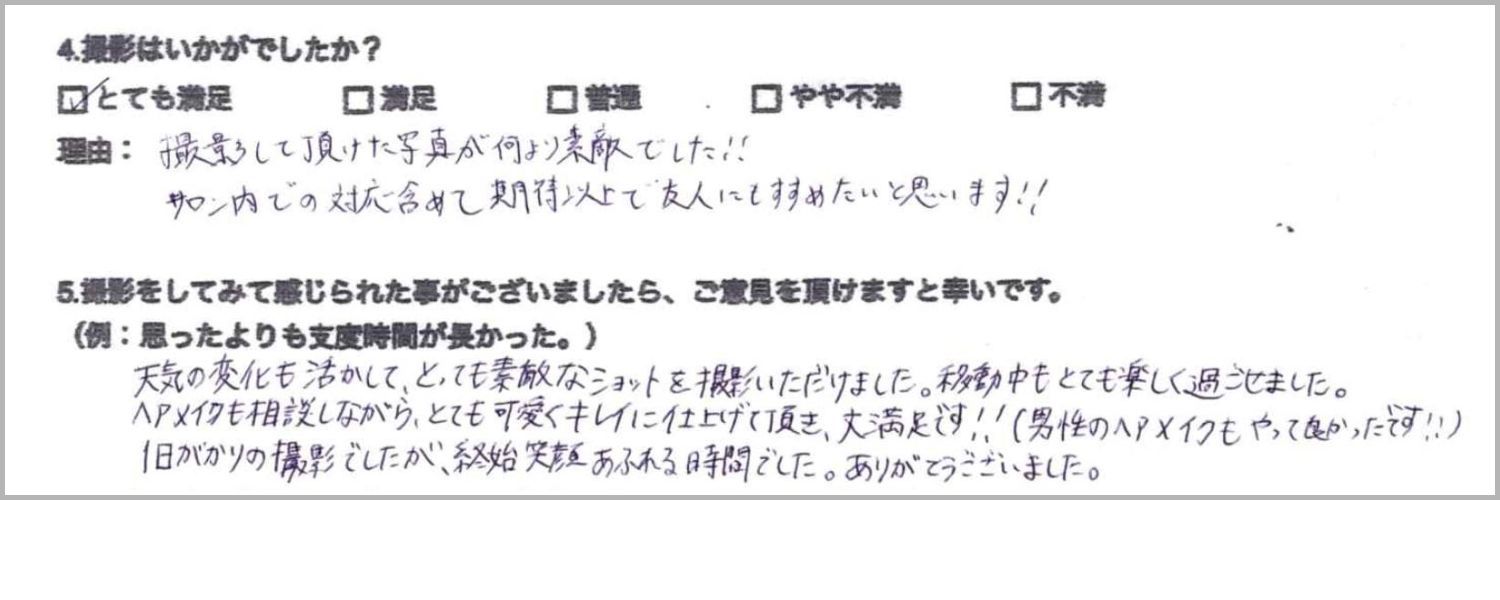 4.撮影はいかがでしたか？
☑とても満足 □満足 □普通 □やや不満 □不満
理由： 撮影して頂けた写真が何より素敵でした!!
サロン内での対応含めて期待以上で友人にもすすめたいと思います!!
5.撮影をしてみて感じられた事がございましたら、ご意見を頂けますと幸いです。
（例：思ったよりも支度時間が長かった。）
天気の変化も活かして、とっても素敵なショットを撮影いただけました。移動中もとても楽しく過ごせました。
ヘアメイクも相談しながら、とても可愛くキレイに仕上げて頂き、大満足です!!(男性のヘアメイクもやって良かったです!!)
1日がかりの撮影でしたが、終始笑顔あふれる時間でした。ありがとうございました。